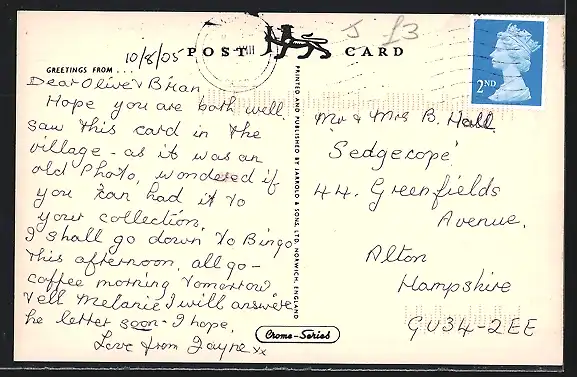 J £3
10/8/05
POST CARD
GREETINGS FROM ...
Dear Olive & Brian
Hope you are both well.
Saw this card in the
village - as it was an
old Photo, wondered if
you had it to
your collection.
I shall go down to Bingo
this afternoon, all go -
coffee morning tomorrow
Tell Melanie I will answere
he letter soon - I hope.
Love from Jayne xx
PRINTED AND PUBLISHED BY JARROLD & SONS LTD. NORWICH, ENGLAND
Crome-Series
2ND
Mr & Mrs B. Hall
'Sedgecope'
44. Greenfields
Avenue.
Alton
Hampshire
GU34-2EE